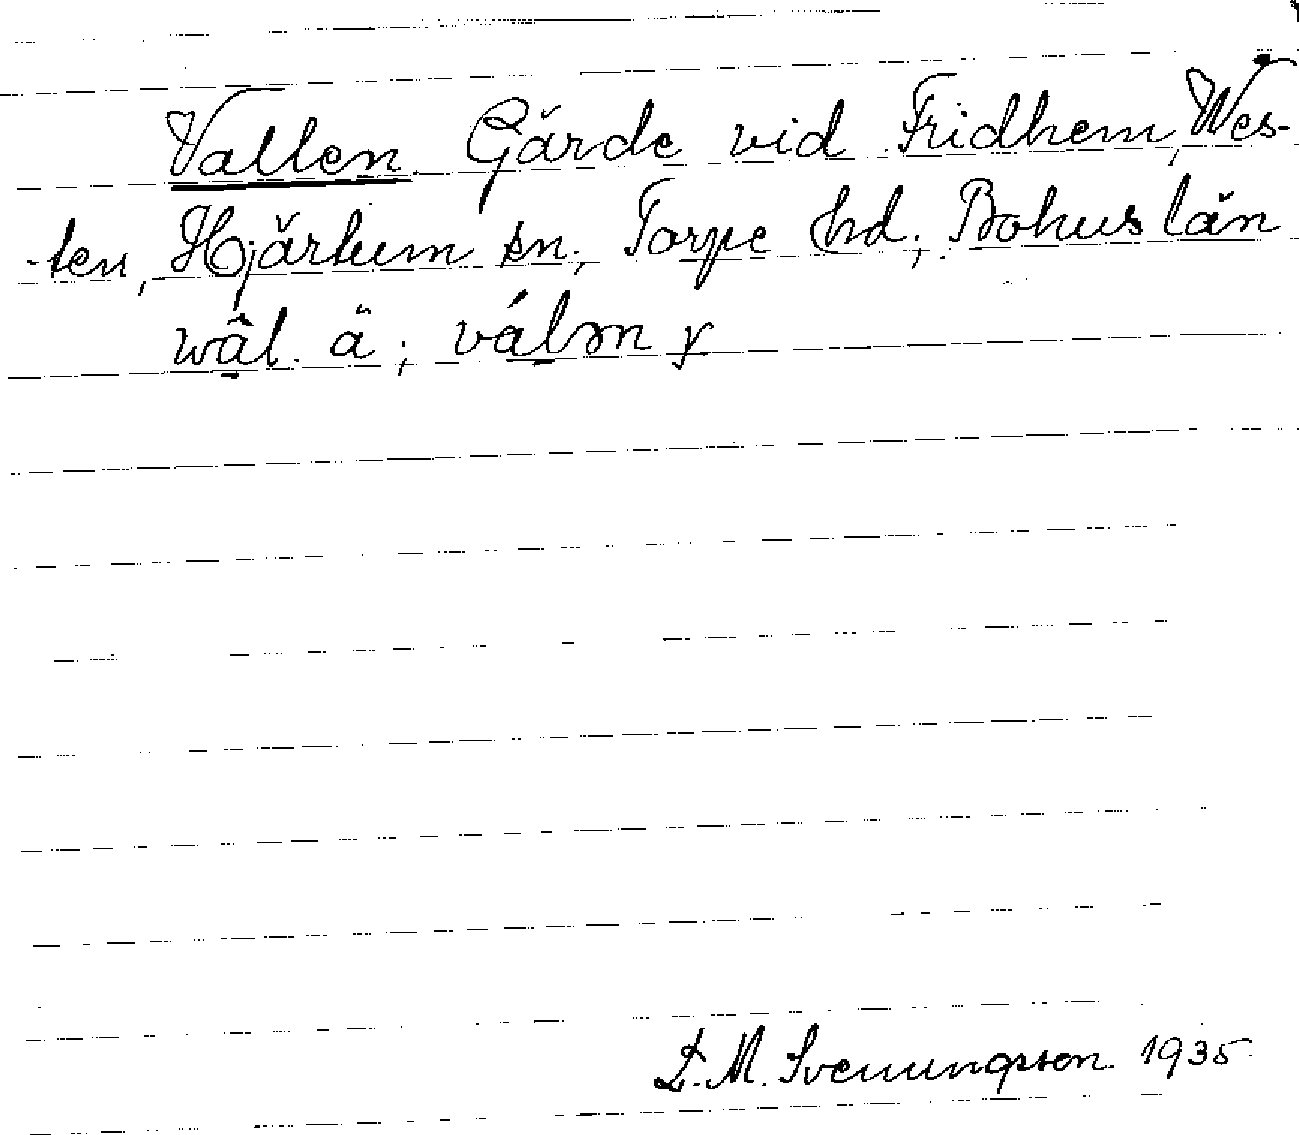 Vallen Gärde vid Fridhem, Wes-
-ten, Hjärtum sn, Torpe hd, Bohuslän
wâl. ä;válən y
D. M. Svenungsson. 1935